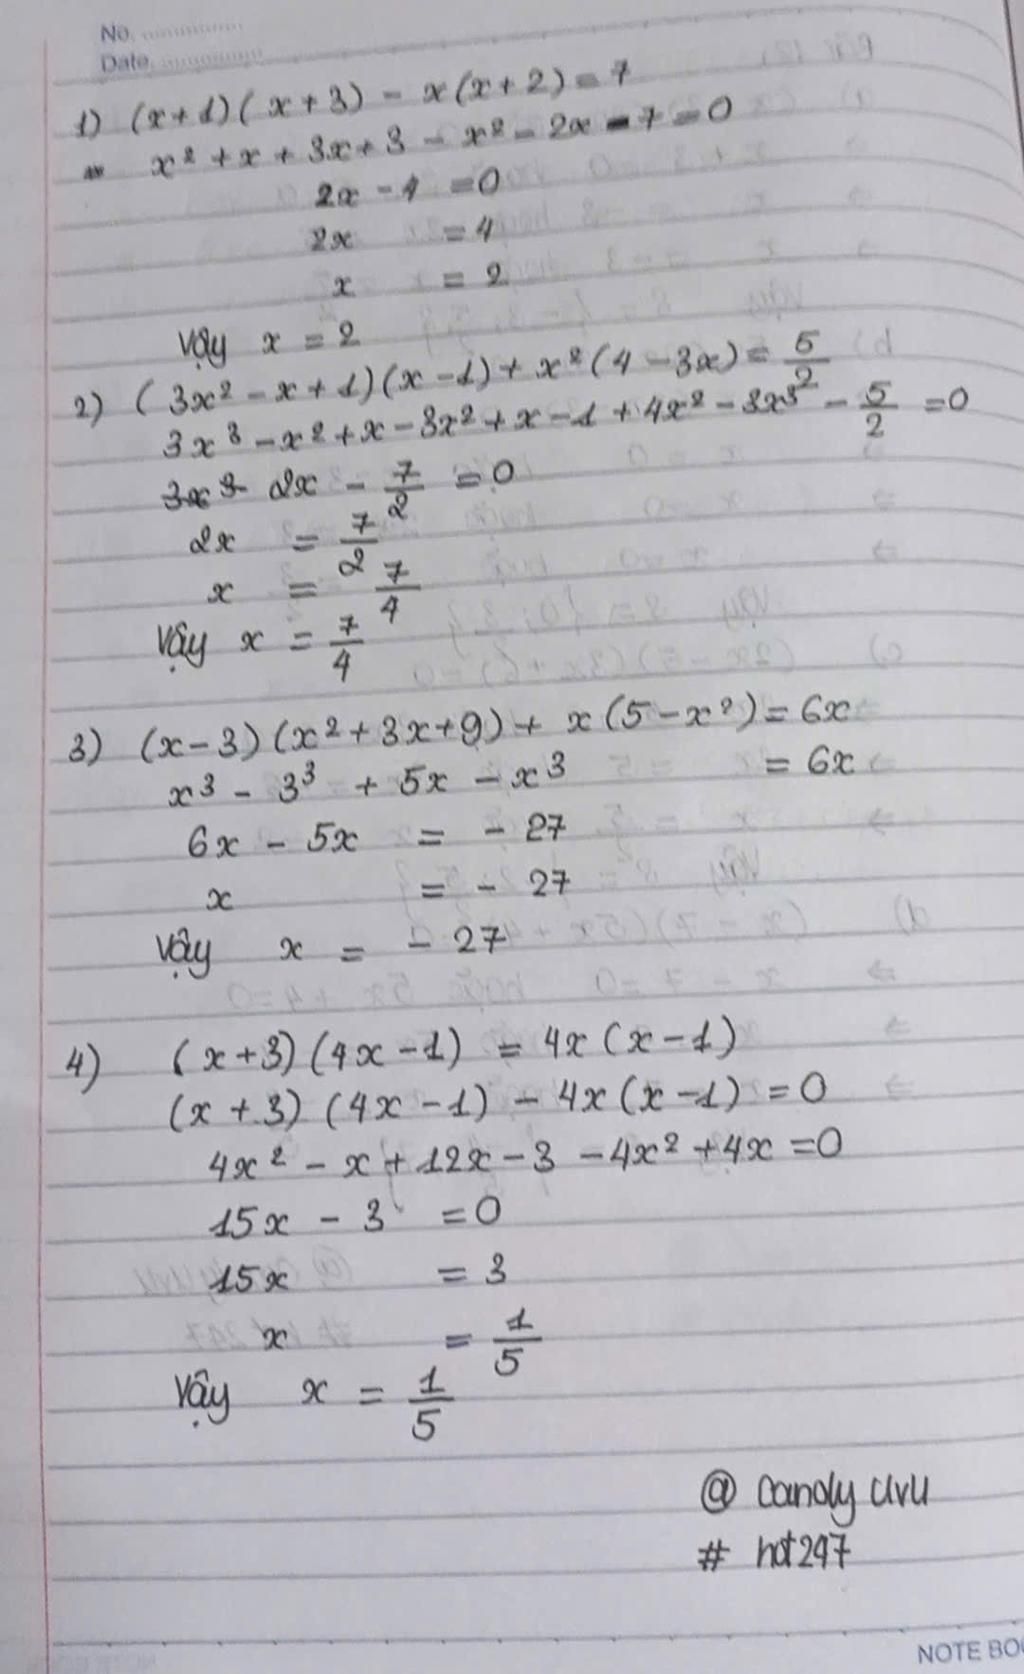 No.
Date
1) (x+1)(x+3) - x(x+2) = 7
x² + x + 3x + 3 - x² - 2x - 7 = 0
2x - 4 = 0
2x = 4
x = 2
Vậy x = 2
2) (3x² - x + 1)(x - 1) + x²(4 - 3x) = 5/2
3x³ - x² + x - 3x² + x - 1 + 4x² - 3x³ - 5/2 = 0
2x - 7/2 = 0
2x = 7/2
x = 7/4
Vậy x = 7/4
3) (x - 3)(x² + 3x + 9) + x(5 - x²) = 6x
x³ - 3³ + 5x - x³ = 6x
6x - 5x = - 27
x = - 27
Vậy x = - 27
4) (x+3)(4x - 1) = 4x(x - 1)
(x + 3)(4x - 1) - 4x(x - 1) = 0
4x² - x + 12x - 3 - 4x² + 4x = 0
15x - 3 = 0
15x = 3
x = 1/5
Vậy x = 1/5
@ Candy UvU
# hot247
NOTE BO